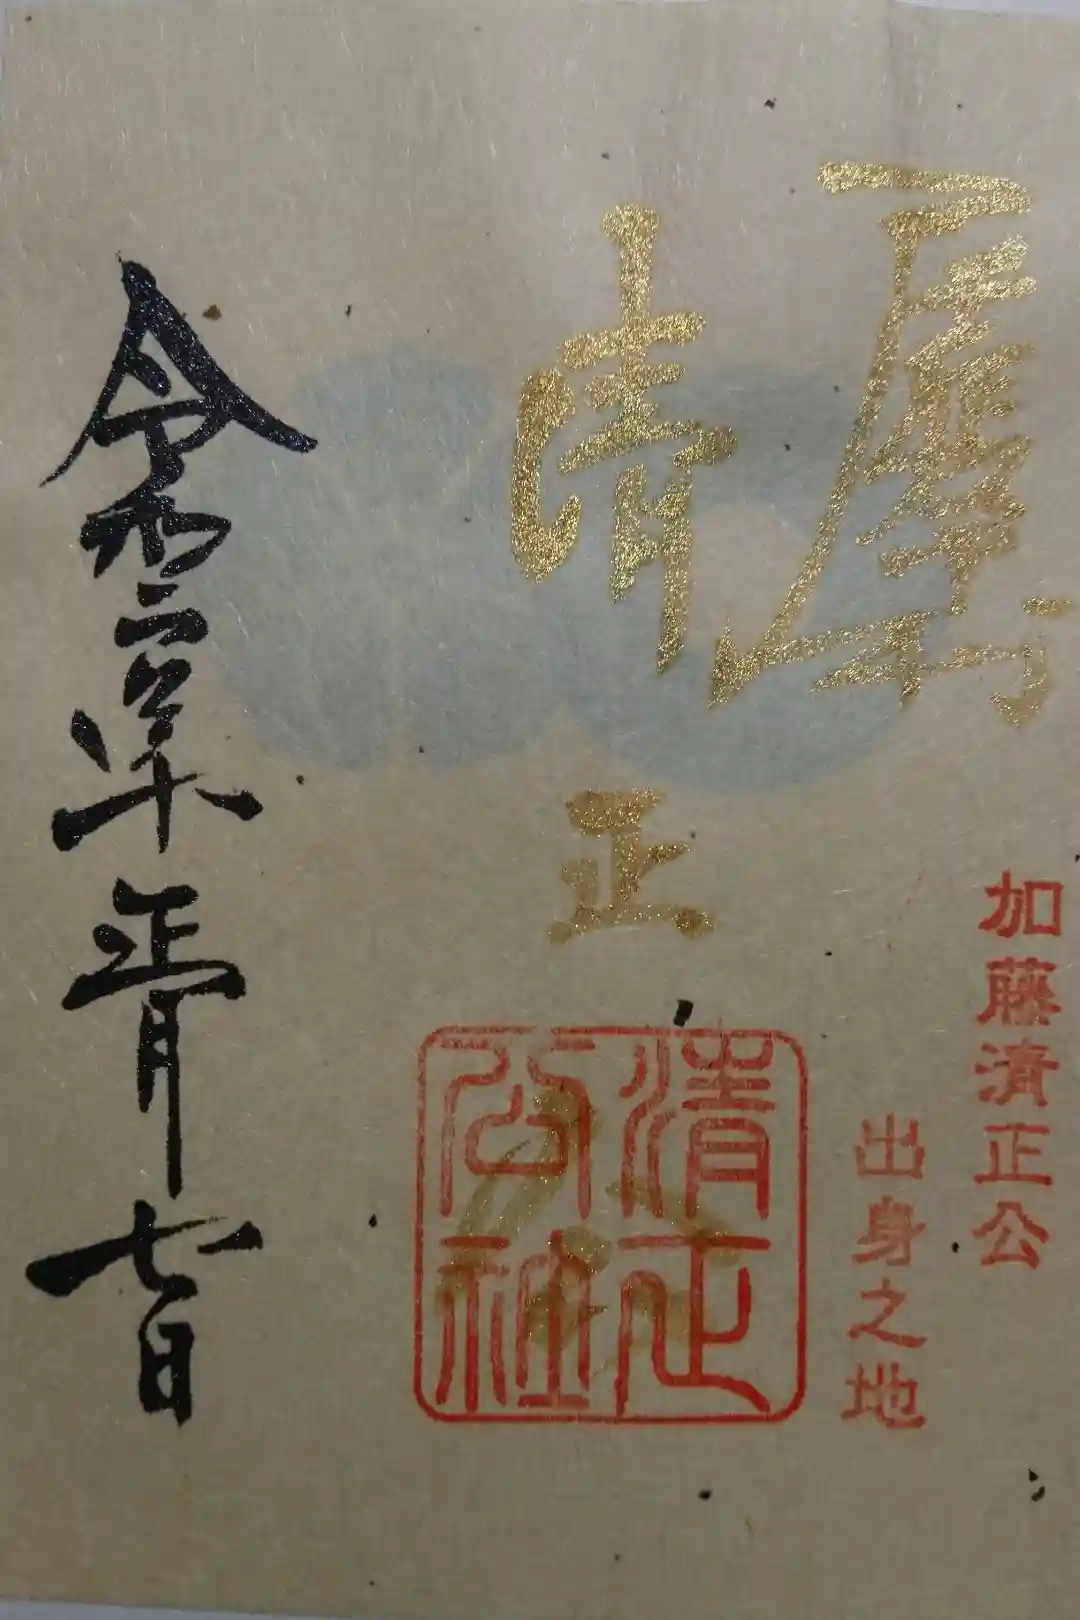 加藤清正公
出身之地
清正公
清正公社
令和三年正月七日